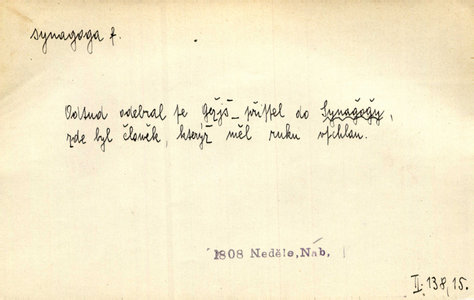 synagoga f.
Odtud odebral se Gežjš_ přissel do Synağoğy,
zde byl člowěk, kterýž měl ruku vschlau.
1808 Neděle, Náb.
II. 138, 15.